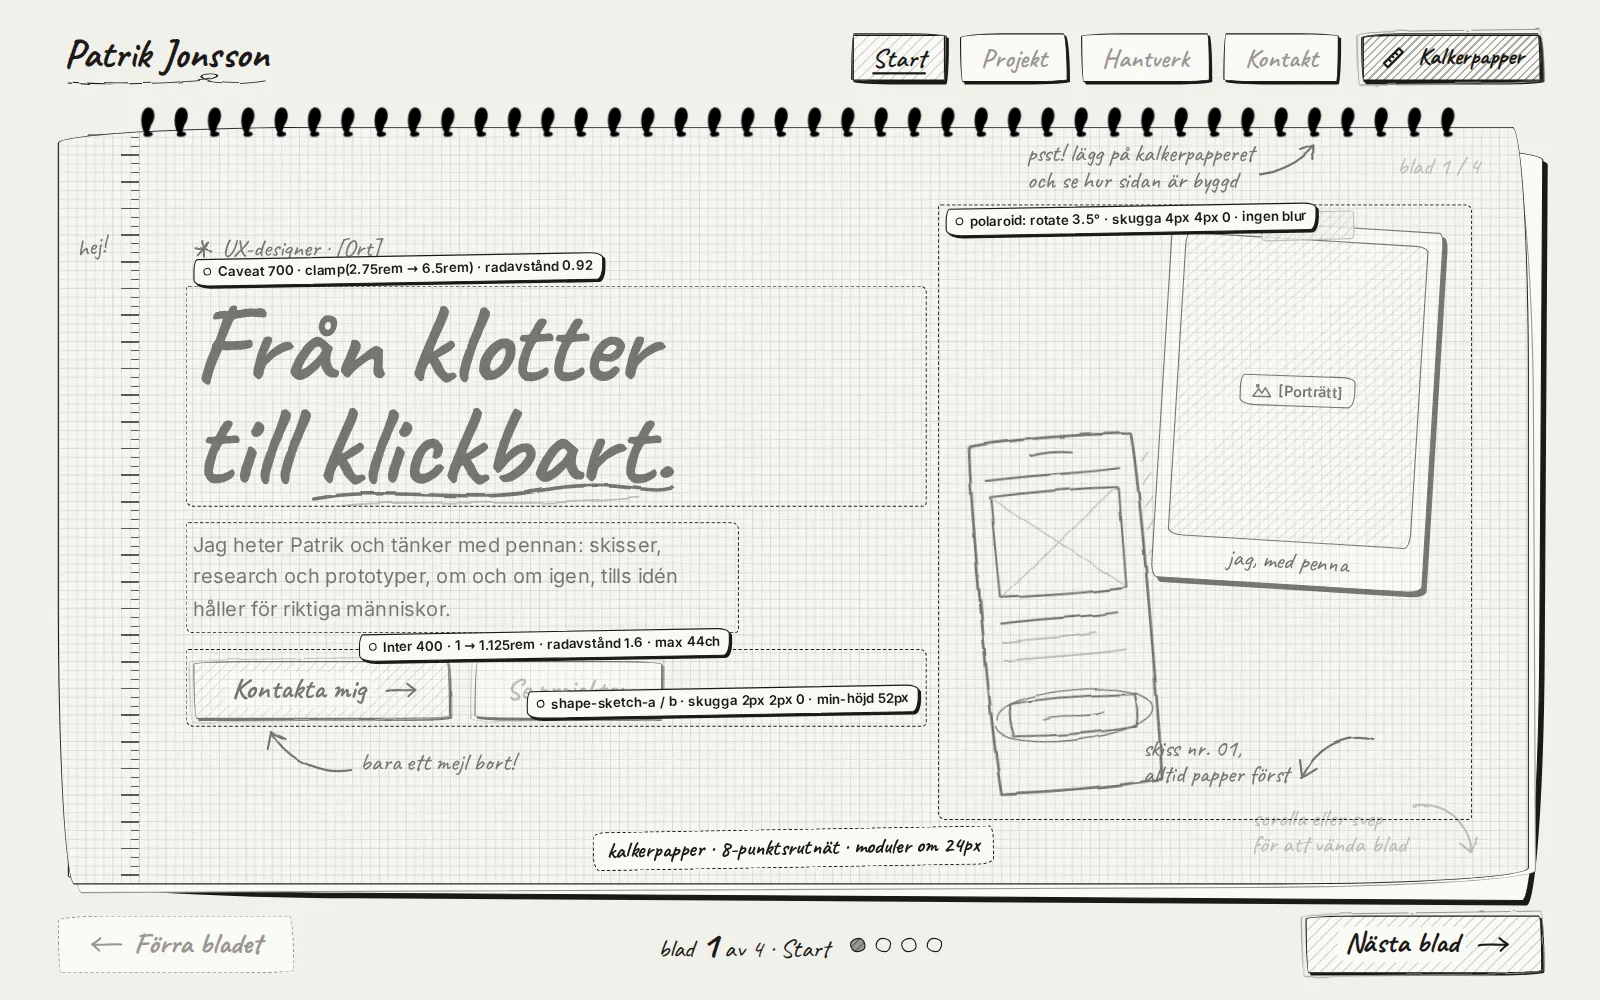 Patrik Jonsson
Start
Projekt
Hantverk
Kontakt
Kalkerpapper
psst! lägg på kalkerpapperet
och se hur sidan är byggd
blad 1 / 4
hej!
UX-designer · [Ort]
Caveat 700 · clamp(2.75rem → 6.5rem) · radavstånd 0.92
Från klotter
till klickbart.
Jag heter Patrik och tänker med pennan: skisser,
research och prototyper, om och om igen, tills idén
håller för riktiga människor.
Inter 400 · 1 → 1.125rem · radavstånd 1.6 · max 44ch
Kontakta mig
shape-sketch-a / b · skugga 2px 2px 0 · min-höjd 52px
bara ett mejl bort!
polaroid: rotate 3.5° · skugga 4px 4px 0 · ingen blur
[Porträtt]
jag, med penna
skiss nr. 01,
alltid papper först
scrolla eller svep
för att vända blad
kalkerpapper · 8-punktsrutnät · moduler om 24px
Förra bladet
blad 1 av 4 · Start
Nästa blad